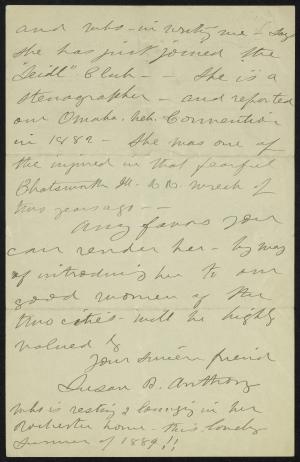 and who - in writing me - says
she has just joined the
"Seidl" Club - - She is a
stenographer - and reported
our Omaha, Neb. Convention
in 1882 - She was one of
the injured in that fearful
Chatsworth Ill. R.R. wreck of
two years ago - -
Any favors you
can render her - by way
of introducing her to our
good women of the
two cities - will be highly
valued by
Your sincere friend
Susan B. Anthony
who is resting & lounging in her
Rochester home - this lovely
summer of 1889!!